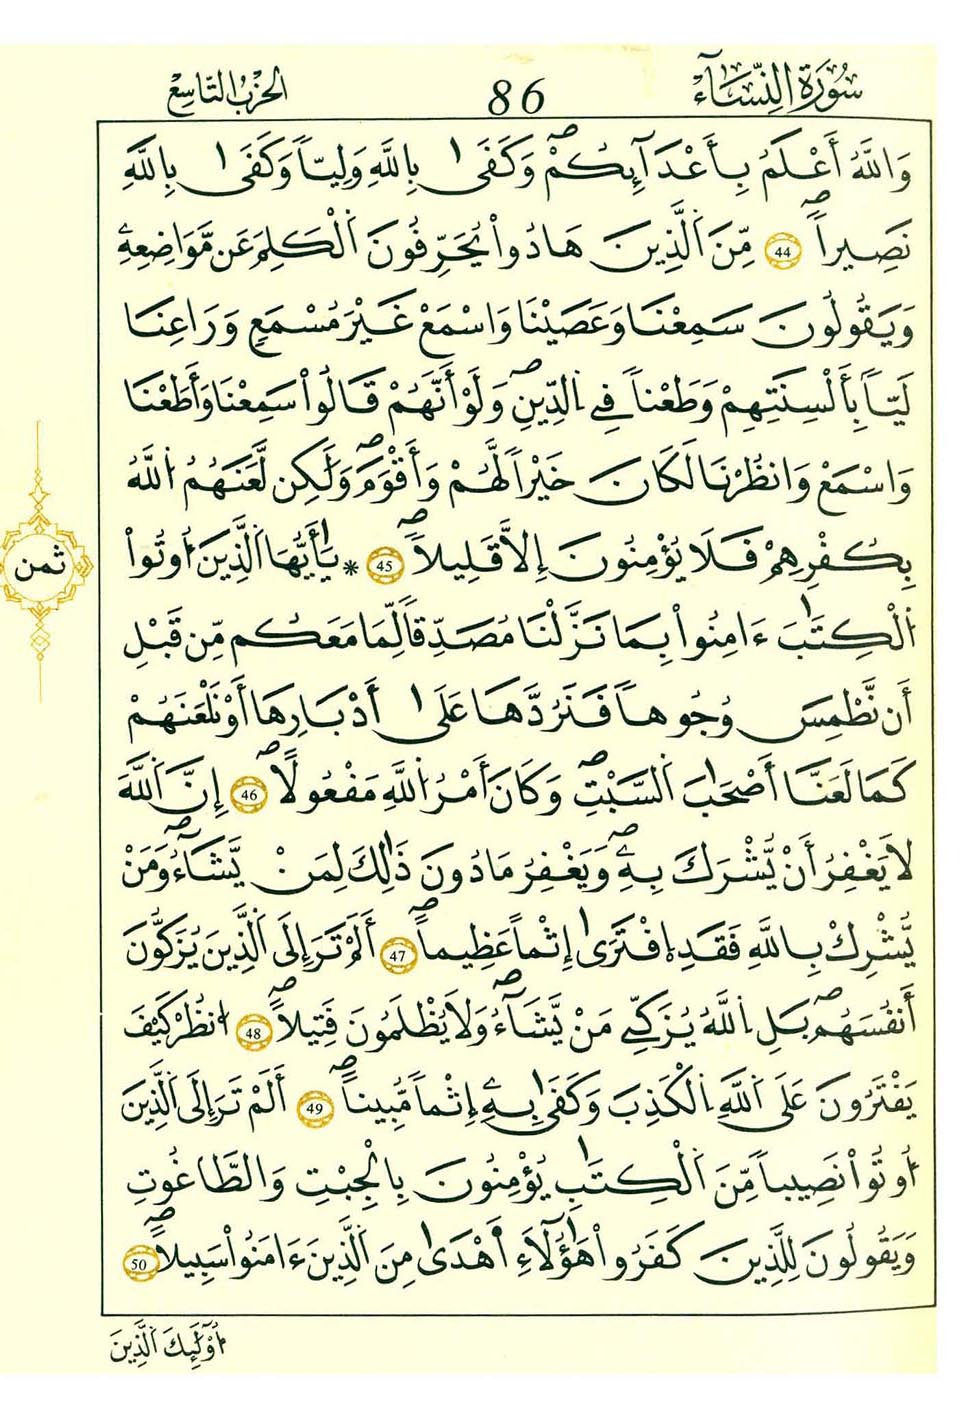 سُورَةُ النِّسَآءِ
86
الحِزْبُ التَّاسِعُ
وَاللَّهُ أَعْلَمُ بِأَعْدَآئِكُمْ وَكَفَىٰ بِاللَّهِ وَلِيّاً وَكَفَىٰ بِاللَّهِ
نَصِيراً 44 مِّنَ اَلَّذِينَ هَادُواْ يُحَرِّفُونَ اَلْكَلِمَ عَن مَّوَاضِعِهِۦ
وَيَقُولُونَ سَمِعْنَا وَعَصَيْنَا وَاسْمَعْ غَيْرَ مُسْمَعٍ وَرَاعِنَا
لَيّاً بِأَلْسِنَتِهِمْ وَطَعْناً فِے اِلدِّينِ وَلَوْ أَنَّهُمْ قَالُواْ سَمِعْنَا وَأَطَعْنَا
وَاسْمَعْ وَانظُرْنَا لَكَانَ خَيْراً لَّهُمْ وَأَقْوَمَ وَلَٰكِن لَّعَنَهُمُ اُللَّهُ
بِكُفْرِهِمْ فَلَا يُؤْمِنُونَ إِلاَّ قَلِيلاً 45 * يَٰأَيُّهَا اَلَّذِينَ أُوتُواْ
اُلْكِتَٰبَ ءَامِنُواْ بِمَا نَزَّلْنَا مُصَدِّقاً لِّمَا مَعَكُم مِّن قَبْلِ
أَن نَّطْمِسَ وُجُوهاً فَنَرُدَّهَا عَلَىٰ أَدْبَارِهَا أَوْ نَلْعَنَهُمْ
كَمَا لَعَنَّا أَصْحَٰبَ اَلسَّبْتِ وَكَانَ أَمْرُ اُللَّهِ مَفْعُولاً 46 إِنَّ اَللَّهَ
لَا يَغْفِرُ أَنْ يُّشْرَكَ بِهِۦ وَيَغْفِرُ مَا دُونَ ذَٰلِكَ لِمَنْ يَّشَآءُ وَمَنْ
يُّشْرِكْ بِاللَّهِ فَقَدِ اِفْتَرَىٰ إِثْماً عَظِيماً 47 أَلَمْ تَرَ إِلَى اَلَّذِينَ يُزَكُّونَ
أَنفُسَهُم بَلِ اِللَّهُ يُزَكِّے مَنْ يَّشَآءُ وَلَا يُظْلَمُونَ فَتِيلاً 48 اُنظُرْ كَيْفَ
يَفْتَرُونَ عَلَى اَللَّهِ اِلْكَذِبَ وَكَفَىٰ بِهِۦ إِثْماً مُّبِيناً 49 أَلَمْ تَرَ إِلَى اَلَّذِينَ
أُوتُواْ نَصِيباً مِّنَ اَلْكِتَٰبِ يُؤْمِنُونَ بِالْجِبْتِ وَالطَّاغُوتِ
وَيَقُولُونَ لِلَّذِينَ كَفَرُواْ هَٰؤُلَآءِ اَهْدَىٰ مِنَ اَلَّذِينَ ءَامَنُواْ سَبِيلاً 50
ثمن
أُوْلَٰئِكَ اَلَّذِينَ